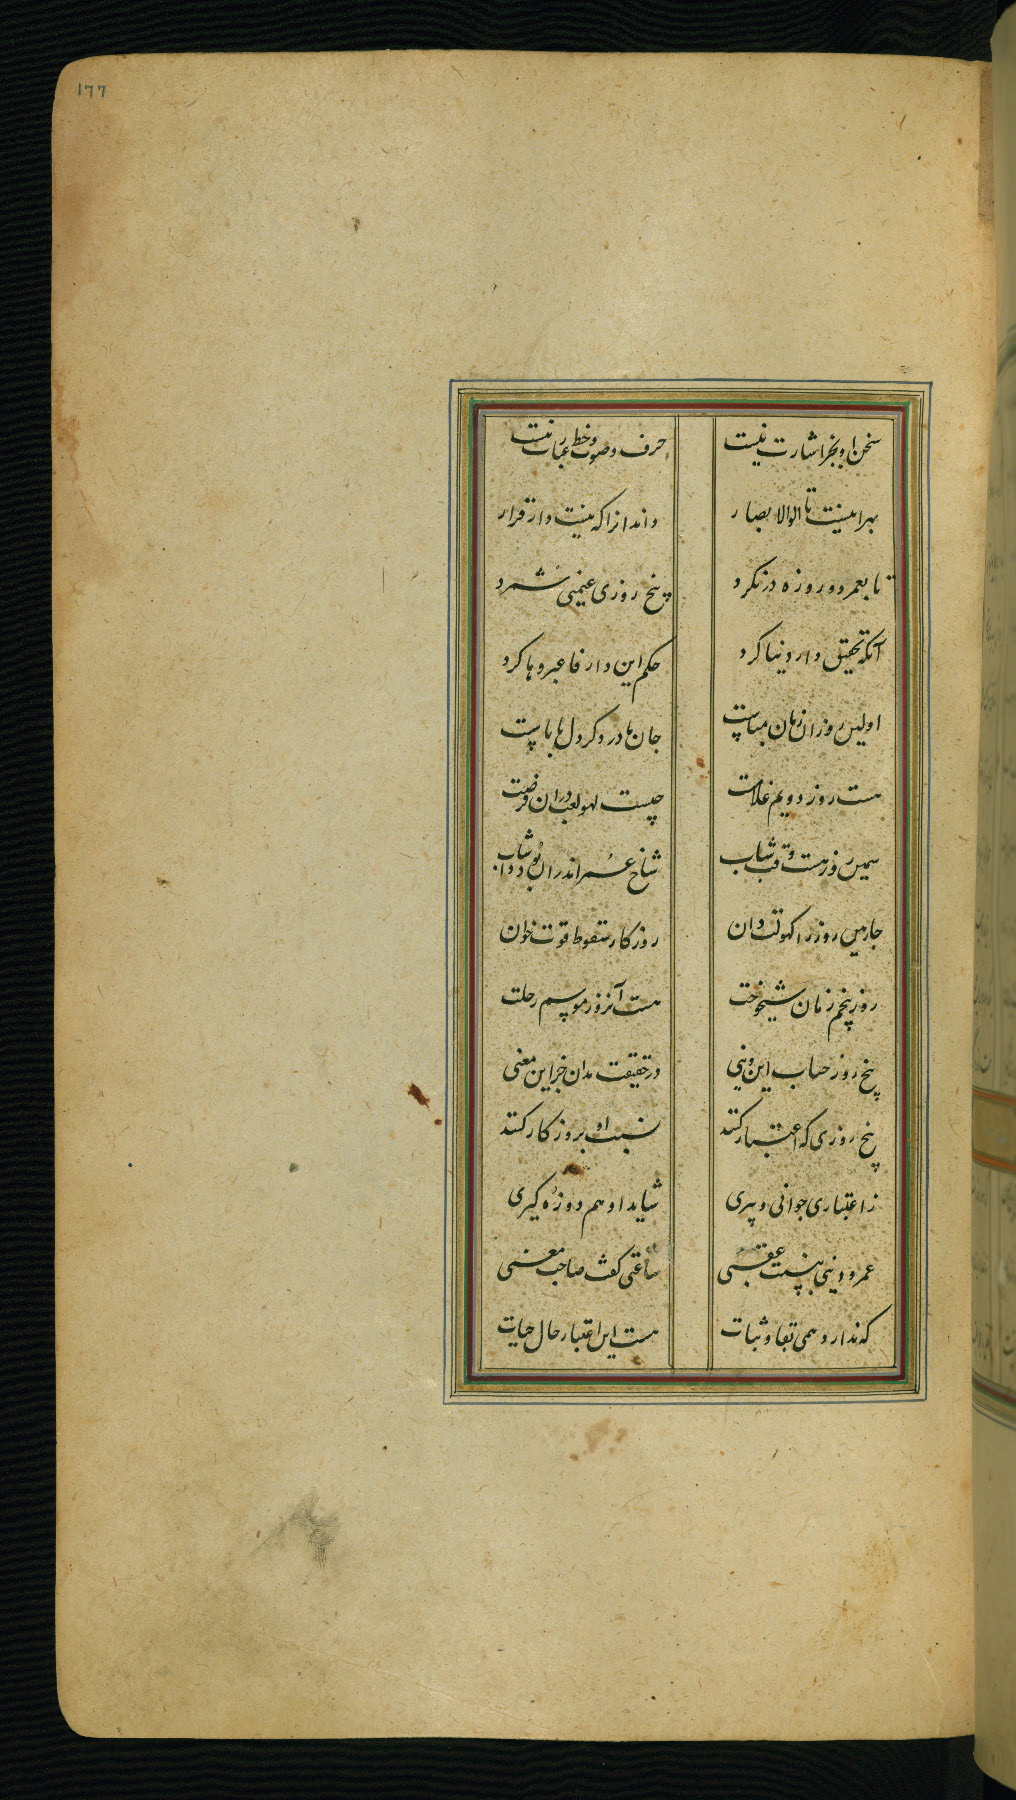 ١٦٦
سخن او بجز اشارت نیست حرف و صوت و خط عبارت نیست
بهر این بیت تا اولوالابصار
تا بعمر دو روزه در نکرد پنج روزی غنیمتی شمرد
آنکه تحقیق دار دنیا کرد حکم این دار فاعبروها کرد
اولین روز ازان زمان جان ها در و کرد دل ها
هست روز دویم چیست لهو لعب دران فرضت
سیمین روز هست وقت شباب شاخ عمر اندران بود شاداب
چارمین روز را کهولت دان روزکار سقوط قوت خوان
روز پنجم زمان شیخوخت هست آنروز موسم رحلت
پنج روز حساب این دنیی در حقیقت مدان جز این معنی
پنج روزی که اعتبار کنند نسبت او بروزکار کنند
ز اعتباری جوانی و پیری شاید ار هم دو روزه کیری
عمر و دنیی به نسبت عقبی ساعتی کفت صاحب معنی
که ندارد همی بقا و ثبات هست این اعتبار حال حیات